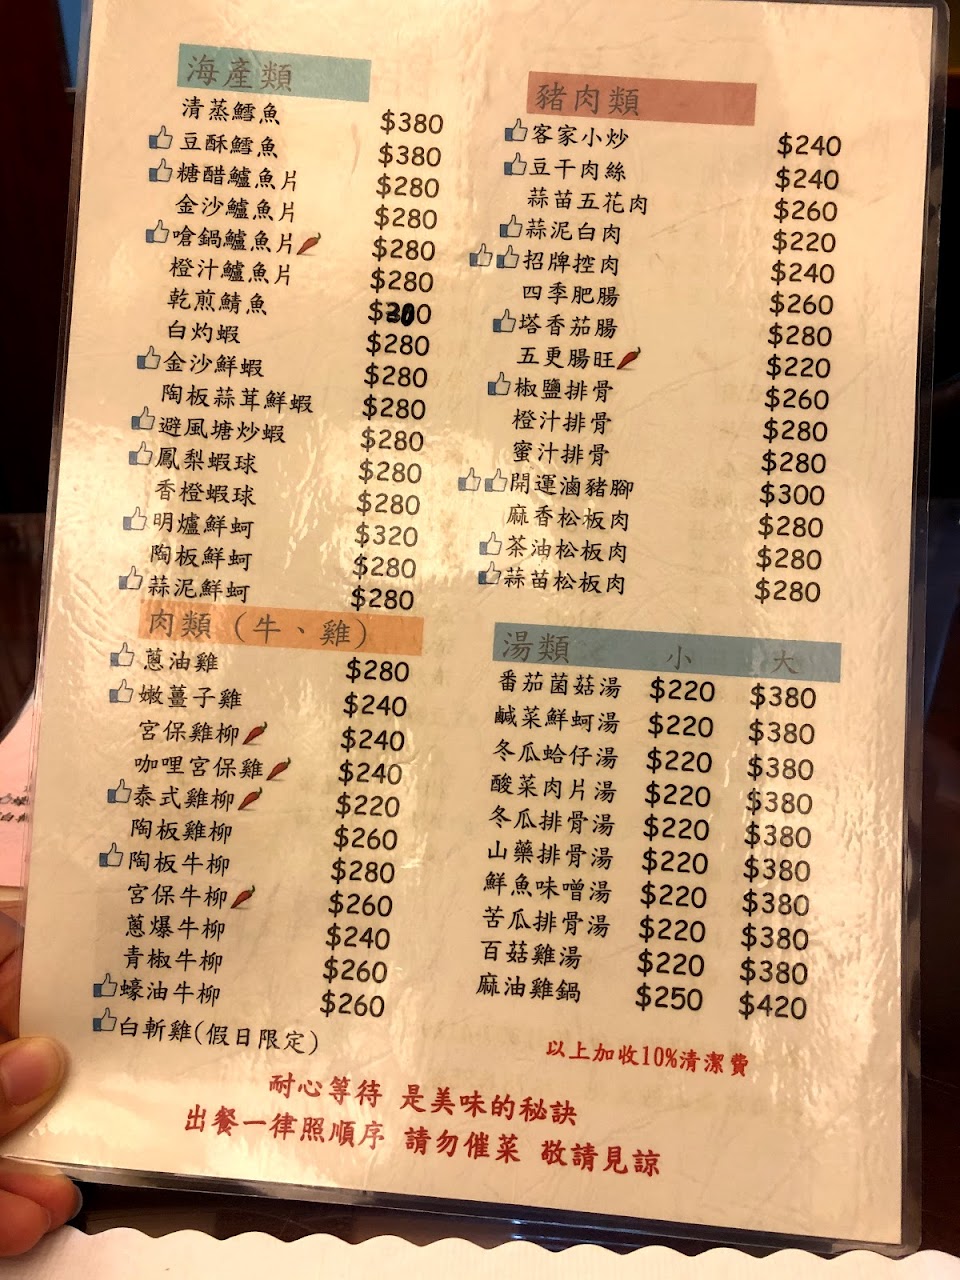 海產類
清蒸鱈魚 $380
豆酥鱈魚 $380
糖醋鱸魚片 $280
金沙鱸魚片 $280
嗆鍋鱸魚片 $280
橙汁鱸魚片 $280
乾煎鯖魚 $300
白灼蝦 $280
金沙鮮蝦 $280
陶板蒜茸鮮蝦 $280
避風塘炒蝦 $280
鳳梨蝦球 $280
香橙蝦球 $280
明爐鮮蚵 $320
陶板鮮蚵 $280
蒜泥鮮蚵 $280
肉類(牛、雞)
蔥油雞 $280
嫩薑子雞 $240
宮保雞柳 $240
咖哩宮保雞 $240
泰式雞柳 $220
陶板雞柳 $260
陶板牛柳 $280
宮保牛柳 $260
蔥爆牛柳 $240
青椒牛柳 $260
蠔油牛柳 $260
白斬雞(假日限定)
豬肉類
客家小炒 $240
豆干肉絲 $240
蒜苗五花肉 $260
蒜泥白肉 $220
招牌控肉 $240
四季肥腸 $260
塔香茄腸 $280
五更腸旺 $220
椒鹽排骨 $260
橙汁排骨 $280
蜜汁排骨 $280
開運滷豬腳 $300
麻香松板肉 $280
茶油松板肉 $280
蒜苗松板肉 $280
湯類 小 大
番茄菌菇湯 $220 $380
鹹菜鮮蚵湯 $220 $380
冬瓜蛤仔湯 $220 $380
酸菜肉片湯 $220 $380
冬瓜排骨湯 $220 $380
山藥排骨湯 $220 $380
鮮魚味噌湯 $220 $380
苦瓜排骨湯 $220 $380
百菇雞湯 $220 $380
麻油雞鍋 $250 $420
以上加收10%清潔費
耐心等待 是美味的秘訣
出餐一律照順序 請勿催菜 敬請見諒